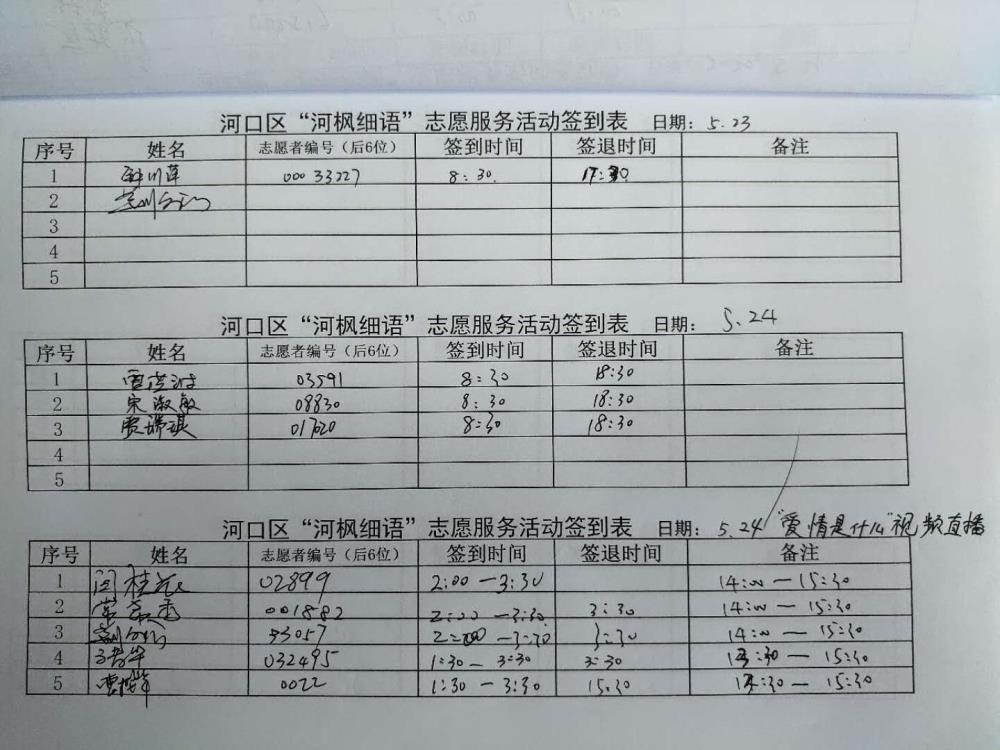 河口区“河枫细语”志愿服务活动签到表 日期：5.23
序号 姓名 志愿者编号（后6位） 签到时间 签退时间 备注
1 00033227 8:30 17:30
2
3
4
5
河口区“河枫细语”志愿服务活动签到表 日期：5.24
序号 姓名 志愿者编号（后6位） 签到时间 签退时间 备注
1 03591 8:30 18:30
2 宋淑敏 08830 8:30 18:30
3 贾瑞琪 017020 8:30 18:30
4
5
河口区“河枫细语”志愿服务活动签到表 日期：5.24 “爱情是什么”视频直播
序号 姓名 志愿者编号（后6位） 签到时间 签退时间 备注
1 闫桂花 02899 2:00—3:30 14:00—15:30
2 001882 2:00—3:30 3:30 14:00—15:30
3 53057 2:00—3:30 3:30 14:00—15:30
4 032495 1:30—3:30 3:30 13:30—15:30
5 0022 1:30—3:30 15.30 13:30—15:30